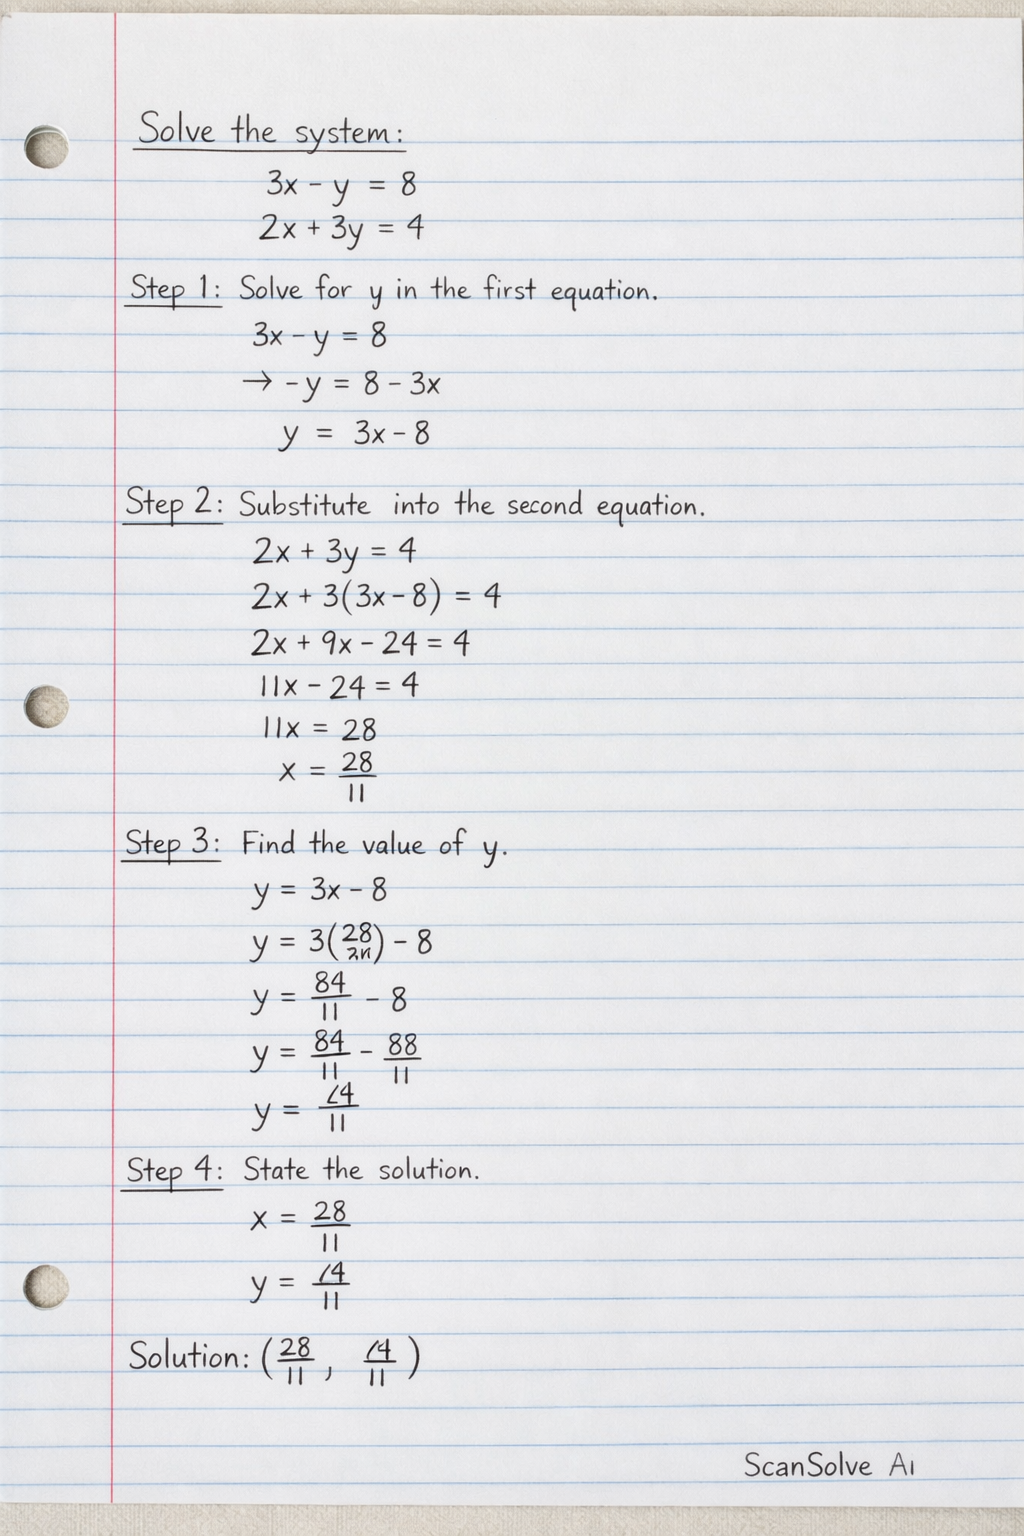 Solve the system:
3x - y = 8
2x + 3y = 4
Step 1: Solve for y in the first equation.
3x - y = 8
→ -y = 8 - 3x
y = 3x - 8
Step 2: Substitute into the second equation.
2x + 3y = 4
2x + 3(3x - 8) = 4
2x + 9x - 24 = 4
11x - 24 = 4
11x = 28
x = 28/11
Step 3: Find the value of y.
y = 3x - 8
y = 3(28/) - 8
y = 84/11 - 8
y = 84/11 - 88/11
y = /11
Step 4: State the solution.
x = 28/11
y = /11
Solution: (28/11, /11)
ScanSolve AI